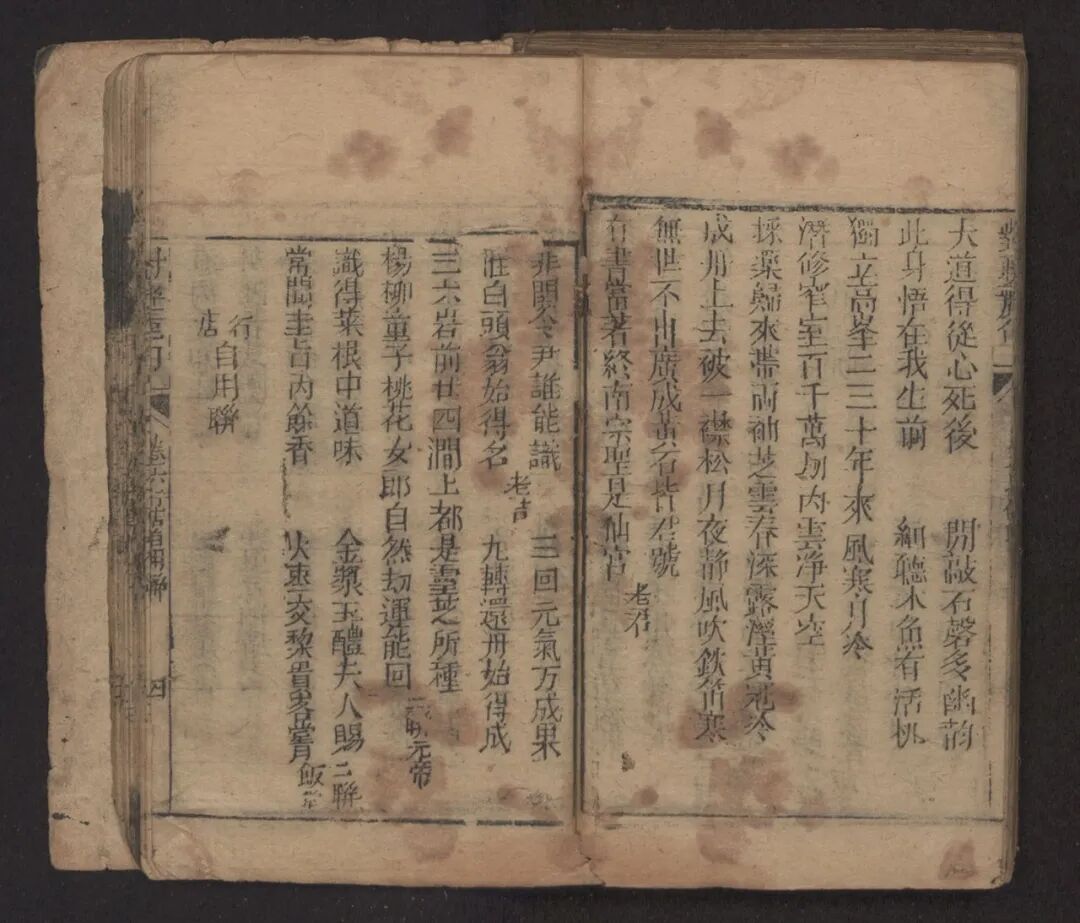 大道得從心死後 閒敲石磬多幽韵
此身悟在我生前 細聽木魚有活桃
獨立高峯二三十年來風寒月冷
潛修窄室百千萬劫內雲净天空
採藥歸來帶兩袖芝雲春深露溼黃冠冷
成丹上去破一襟松月夜静風吹鉄笛寒
無世不出廣成黃石皆君號
有書當著終南宗聖是仙宮 老君
非関令尹誰能識 三回元氣方成果
旺白頭翁始得名 老吉 九轉還丹始得成
三六岩前廿四澗上都是靈芝所種
楊柳童子桃花女郎自然劫運能回 元帝
識得菜根中道味 金漿玉醴夫人賜 二聯
常聞圭旨內餘香 火棗交黎貴客嘗 飯堂
行
店 自用聯
卷六 店自用聯
四